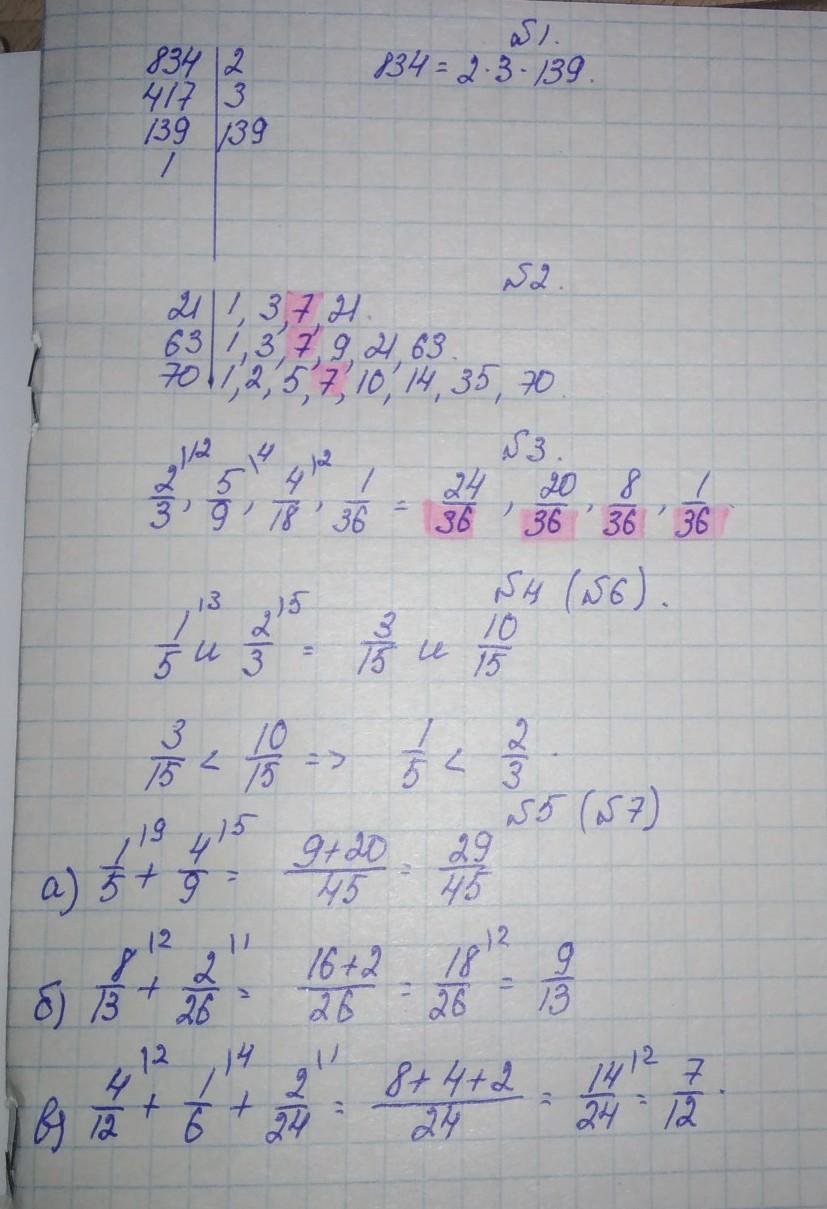 №1.
834 | 2   834 = 2·3·139.
417 | 3
139 | 139
1 |
№2.
21 | 1, 3, 7, 21.
63 | 1, 3, 7, 9, 21, 63.
70 | 1, 2, 5, 7, 10, 14, 35, 70
№3.
2/3 \12, 5/9 \4, 4/18 \2, 1/36 = 24/36, 20/36, 8/36, 1/36
№4 (№6).
1/5 \3 и 2/3 \5 = 3/15 и 10/15
3/15 < 10/15 => 1/5 < 2/3.
№5 (№7)
а) 1/5 \9 + 4/9 \5 = 9+20/45 = 29/45
б) 8/13 \2 + 2/26 \1 = 16+2/26 = 18/26 \2 = 9/13
в) 4/12 \2 + 1/6 \4 + 2/24 \1 = 8+4+2/24 = 14/24 \2 = 7/12.